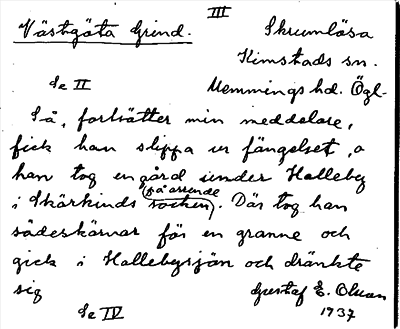 III
Västgöta Grind.
Skrumlösa
Kimstads sn.
Se II
Memmings hd. Ögl.
Så, fortsätter min meddelare,
fick han slippa ur fängelset, o
han tog en gård under Halleby
(på arrende)
i Skärkinds socken. Där tog han
sådeskärvar för en granne och
gick i Hallebysjön och dränkte
sig
Gustaf E. Olsson
Se IV
1937